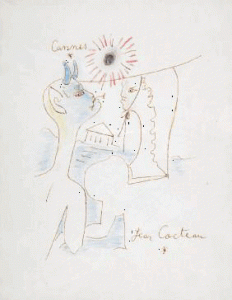 Cannes
Jean Cocteau